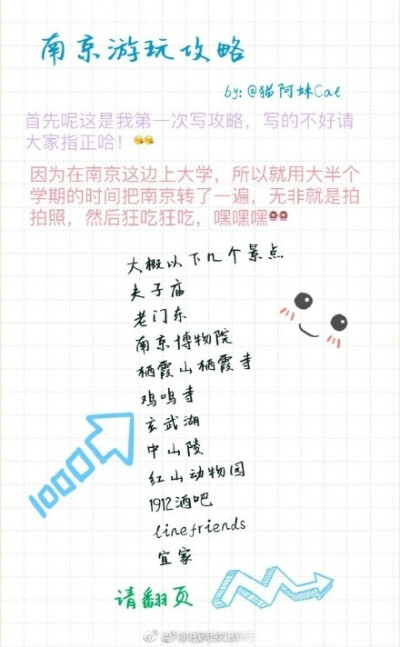 南京游玩攻略
by: @猫阿妹Cat
首先呢这是我第一次写攻略，写的不好请
大家指正哈！😘😘
因为在南京这边上大学，所以就用大半个
学期的时间把南京转了一遍，无非就是拍
拍照，然后狂吃狂吃，嘿嘿嘿
大概以下几个景点
夫子庙
老门东
南京博物院
栖霞山栖霞寺
鸡鸣寺
玄武湖
中山陵
红山动物园
1912酒吧
linefriends
宜家
请翻页